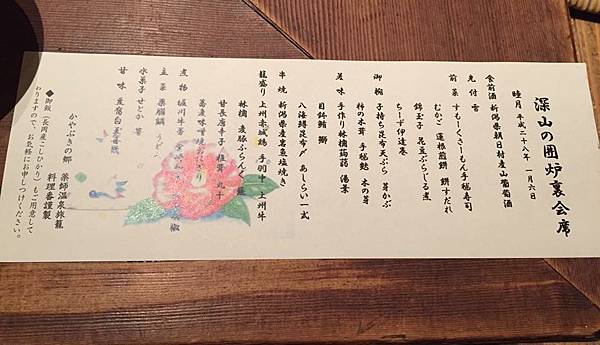 深山の囲炉裏会席
睦月 平成二十八年 一月六日
食前酒 新潟県朝日村産山葡萄酒
先付 雪
前菜 すもーくさーもん手毬寿司
むかご 蓮根煎餅 餅すだれ
錦玉子 花豆ぶらじる煮
ちーず伊達巻
御椀 子持ち昆布天ぷら 芽かぶ
杵の木茸 手毬麩 木の芽
差味 手作り林檎蒟蒻 湯葉
目鉢鮪 鰤
八海鱒昆布〆 あしらい一式
串焼 新潟県産岩魚塩焼き
籠盛り 上州赤城鶏 手羽津 上州牛
甘長唐辛子 椎茸 丸十
林檎 麦豚ふらんく
蕎麦味噌焼おにぎり
煮物 堀川牛蒡
主菜 薬膳鍋 うどん
水菓子 せとか 苺
甘味 豆腐白玉
◆御飯(長岡産こしひかり)もご用意して
おりますので、お気軽にお申しつけください。
かやぶきの郷 薬師温泉旅籠
料理番謹製